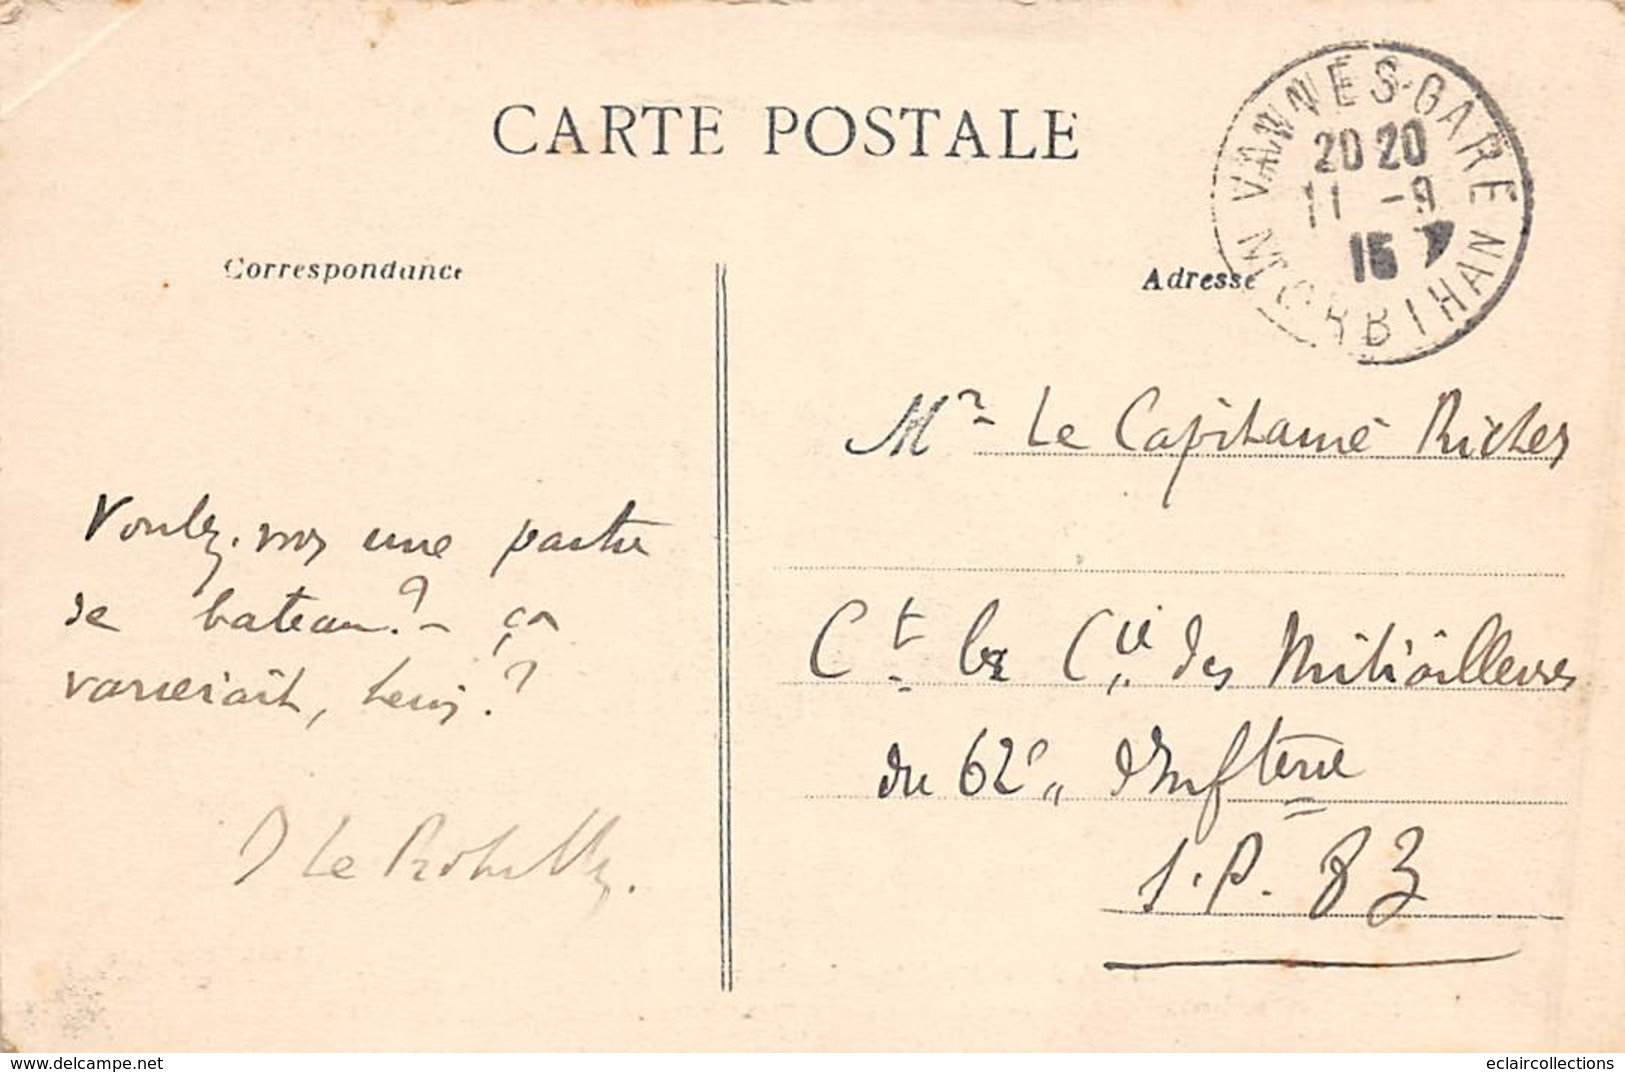 CARTE POSTALE
VANNES-GARE
20 20
11 -9
15
MORBIHAN
Correspondance
Adresse
Mr Le Capitaine Richer
Voulez-vous une partie
de bateau? - ça
varierait, hein?
Ct la Cie des Mitrailleuses
du 62e d'Infterie
S.P. 83
Le Rohellec.
www.delcampe.net
eclaircollections